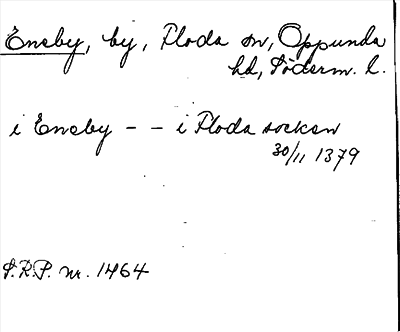 Eneby, by, Floda sn, Oppunda
hd, Söderm. l.
i Eneby - - i Floda socken
30/11 1379
S.R.P. nr. 1464